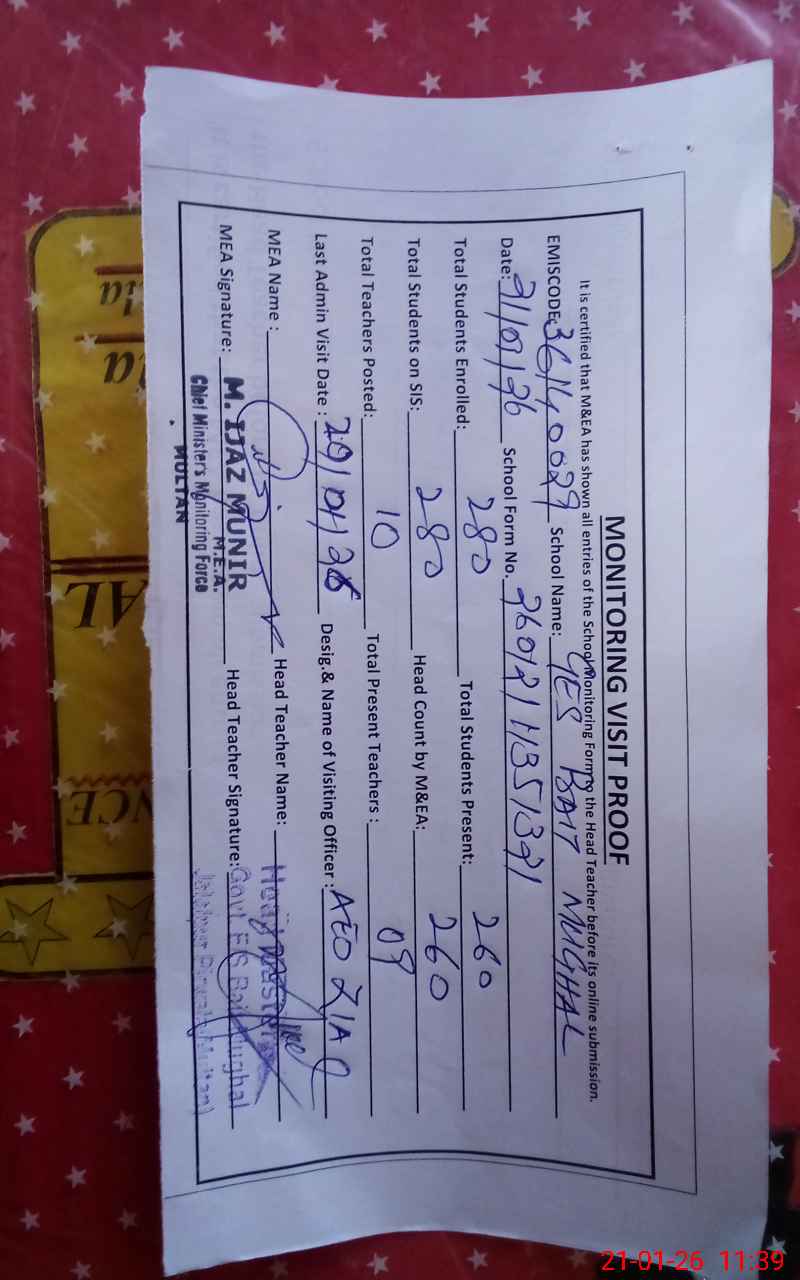 MONITORING VISIT PROOF
It is certified that M&EA has shown all entries of the School Monitoring Form to the Head Teacher before its online submission.
EMISCODE: 36140029 School Name: YES BAIT MUGHAL
Date: 21/01/26 School Form No. 2601211351321
Total Students Enrolled: 280 Total Students Present: 260
Total Students on SIS: 280 Head Count by M&EA: 260
Total Teachers Posted: 10 Total Present Teachers : 09
Last Admin Visit Date : 20/01/26 Desig.& Name of Visiting Officer : AEO ZIA
MEA Name : Head Teacher Name:
MEA Signature: Head Teacher Signature:
M. IJAZ MUNIR
M.E.A.
Chief Minister's Monitoring Force
MULTAN
Govt E/S Bait Mughal
Jalalpur Pirwala (Multan)
21-01-26 11:39